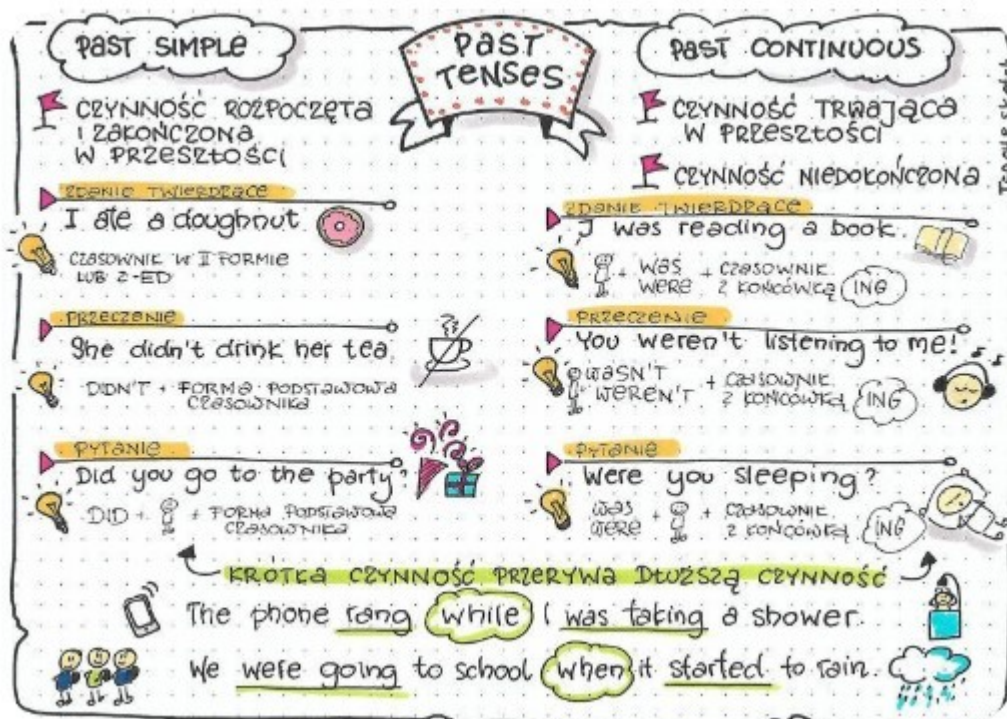 PAST SIMPLE
PAST
TENSES
PAST CONTINUOUS
CZYNNOŚĆ ROZPOCZĘTA
I ZAKOŃCZONA
W PRZESZŁOŚCI
ZDANIE TWIERDZĄCE
I ate a doughnut
CZASOWNIK W II FORMIE
LUB Z -ED
PRZECZENIE
She didn't drink her tea.
DIDN'T + FORMA PODSTAWOWA
CZASOWNIKA
PYTANIE
Did you go to the party?
DID + + FORMA PODSTAWOWA
CZASOWNIKA
CZYNNOŚĆ TRWAJĄCA
W PRZESZŁOŚCI
CZYNNOŚĆ NIEDOKOŃCZONA
ZDANIE TWIERDZĄCE
I was reading a book.
+ WAS + CZASOWNIK
WERE Z KOŃCÓWKĄ ING
PRZECZENIE
You weren't listening to me!
WASN'T + CZASOWNIK
WEREN'T Z KOŃCÓWKĄ ING
PYTANIE
Were you sleeping?
WAS + + CZASOWNIK
WERE Z KOŃCÓWKĄ ING
KRÓTKA CZYNNOŚĆ PRZERYWA DŁUŻSZĄ CZYNNOŚĆ
The phone rang while I was taking a shower.
We were going to school when it started to rain.